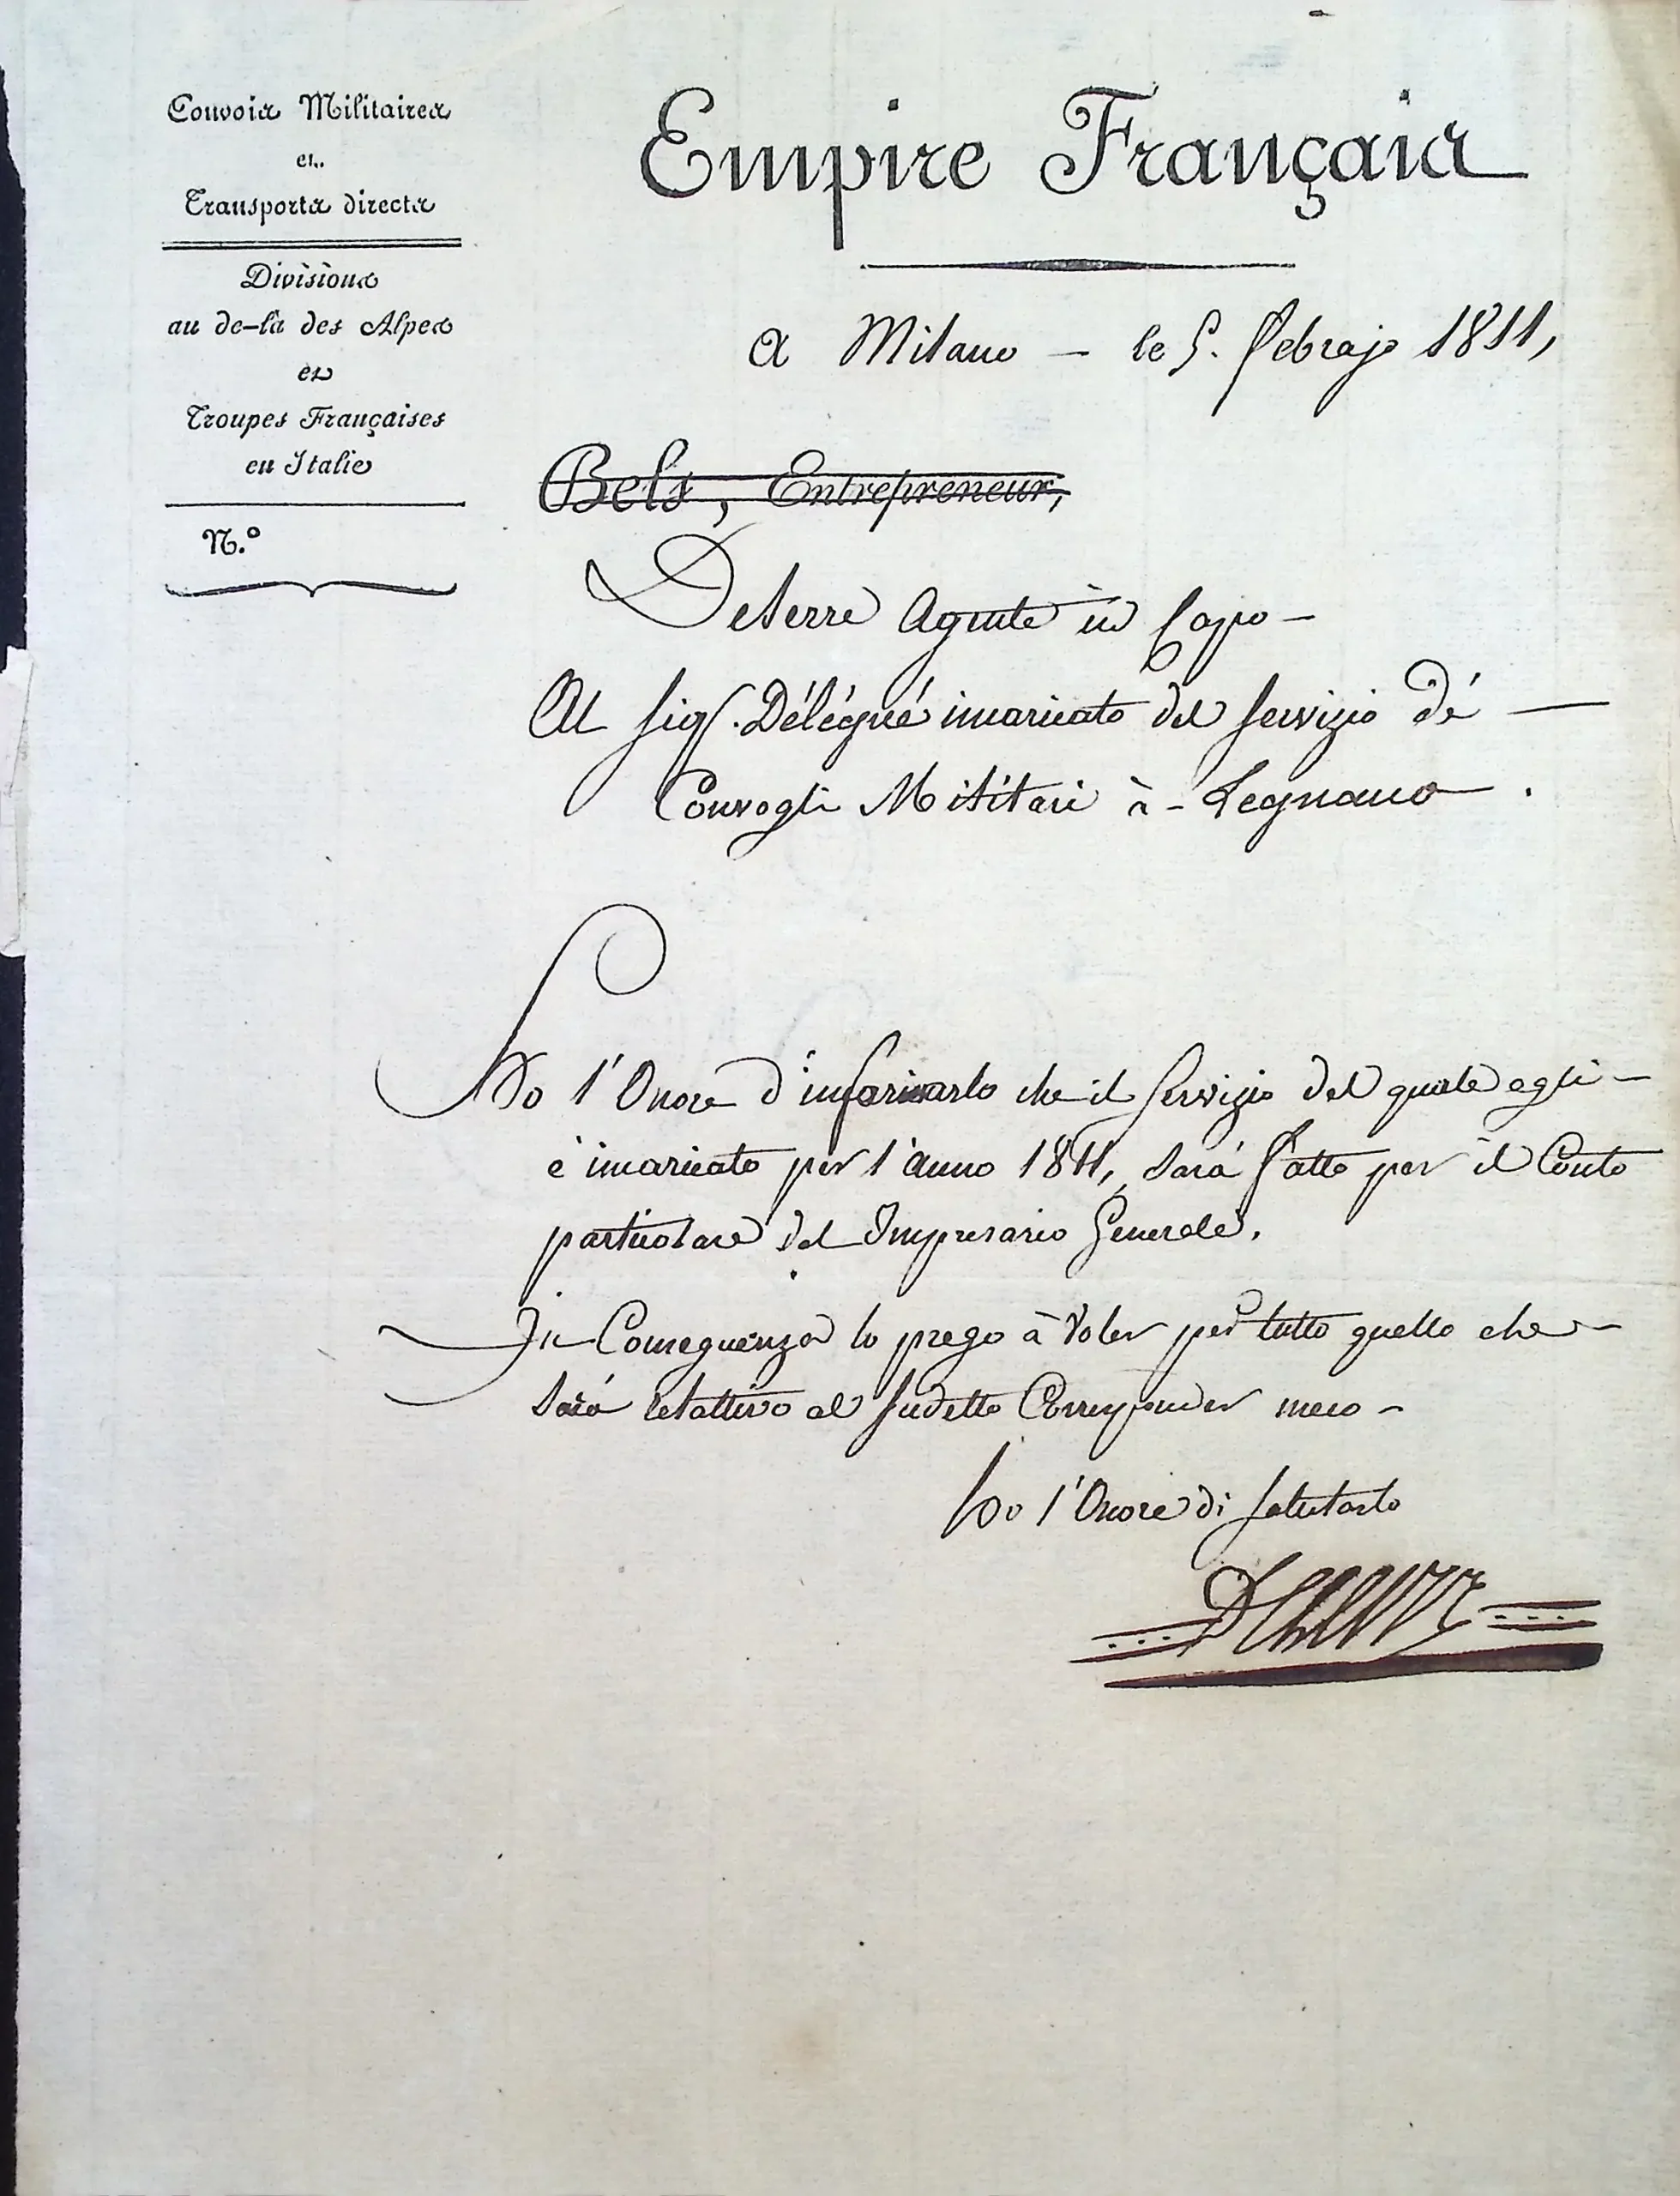 Convois Militaires
et
Transports directs
Divisions
au de-là des Alpes
et
Troupes Françaises
en Italie
N.º
Empire Français
A Milano - le 5. febrajo 1811,
Bels, Entrepreneur,
Delerre Agente in Capo -
Al Sigr. Délégué incaricato del servizio dé
Convogli Militari à - Legnano.
Ho l'Onore d'informarlo che il Servizio del quale egli -
è incaricato per l'anno 1811, sarà fatto per il Conto
particolare del Impresario Generale.
In Conseguenza lo prego à voler per tutto quello che -
sarà relattivo al sudetto Corrisponder meco -
Ho l'Onore di salutarlo